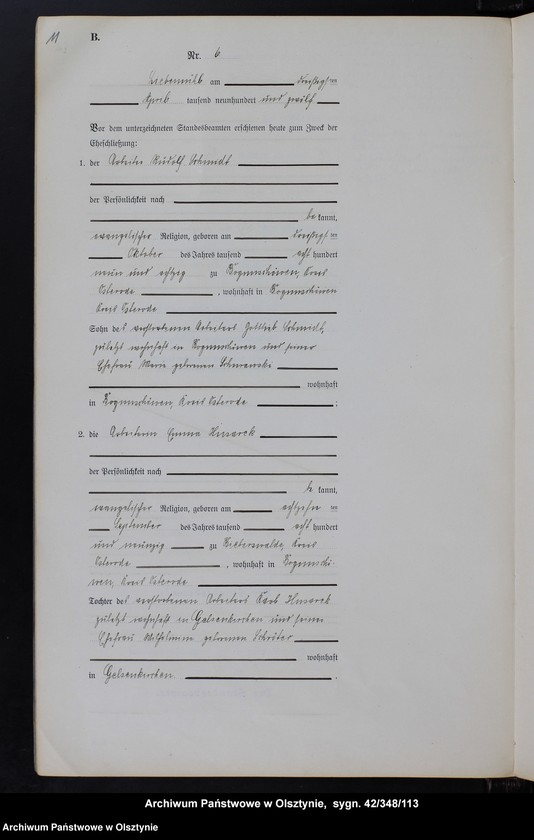 11
B.
Nr. 6
Liebemühl am dreißigsten
April tausend neunhundert und zwölf
Vor dem unterzeichneten Standesbeamten erschienen heute zum Zweck der
Eheschließung:
1. der Arbeiter Rudolf Schmidt
der Persönlichkeit nach
be kannt,
evangelischer Religion, geboren am dreißigsten
Oktober des Jahres tausend acht hundert
neun und achtzig zu Kreis
Osterode, wohnhaft in
Kreis Osterode
Sohn des verstorbenen Arbeiters Gottlieb Schmidt,
zuletzt wohnhaft in und seiner
Ehefrau Marie geborenen
wohnhaft
in Kreis Osterode ;
2. die Arbeiterin Emma
der Persönlichkeit nach
be kannt,
evangelischer Religion, geboren am achtzehn ten
September des Jahres tausend acht hundert
und neunzig zu Bieberswalde, Kreis
Osterode, wohnhaft in
Kreis Osterode
Tochter des verstorbenen Arbeiters Karl
zuletzt wohnhaft in Gelsenkirchen und seiner
Ehefrau Wilhelmine geborenen Schröter
wohnhaft
in Gelsenkirchen .
Archiwum Państwowe w Olsztynie, sygn. 42/348/113
Archiwum Państwowe w Olsztynie